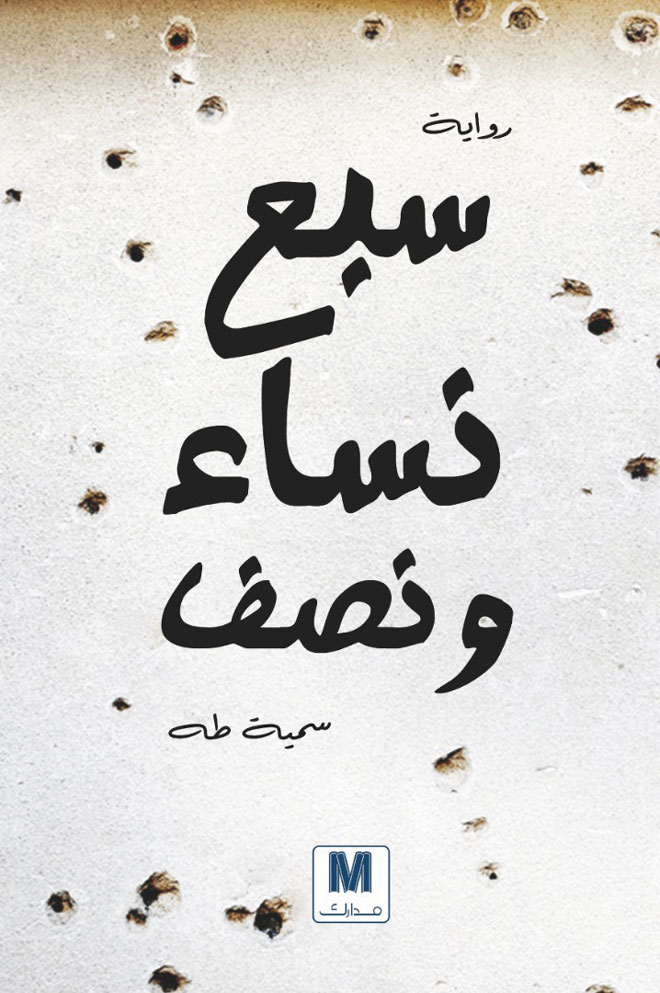 رواية
سبع
نساء
ونصف
سمية طه
M
مدارك